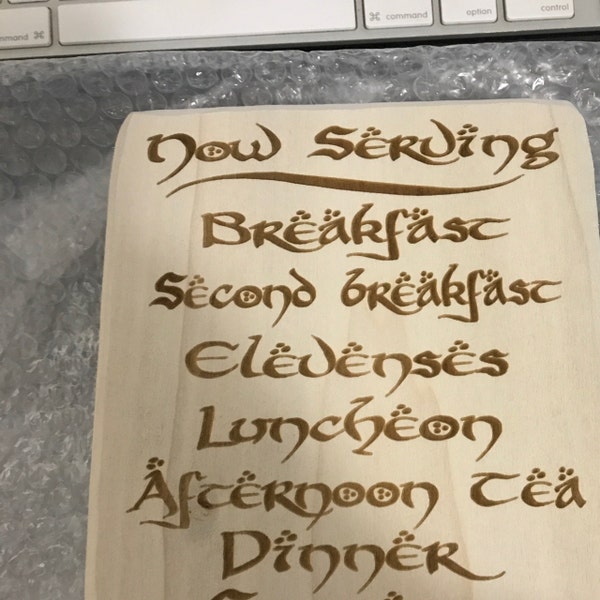 mmand ⌘
⌘ command
option
control
Now Serving
Breakfast
Second breakfast
Elevenses
Luncheon
Afternoon Tea
Dinner